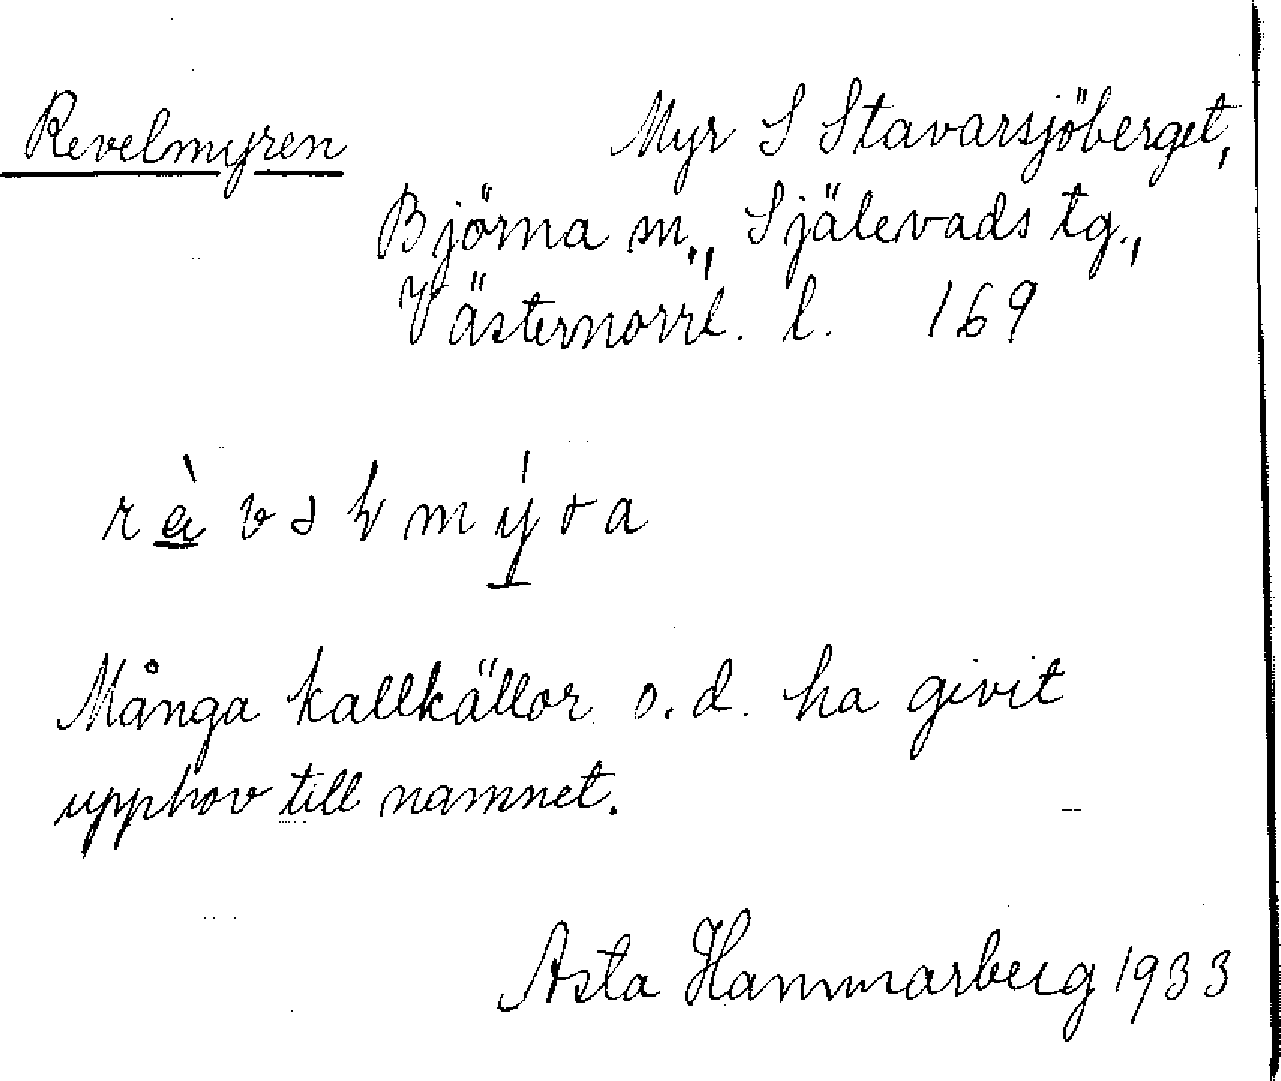 Revelmyren Myr S Stavarsjöberget,
Björna sn., Själevads tg.,
Västernorrl. l. 169
Många kallkällor o.d. ha givit
upphov till namnet.
Asta Hammarberg 1933